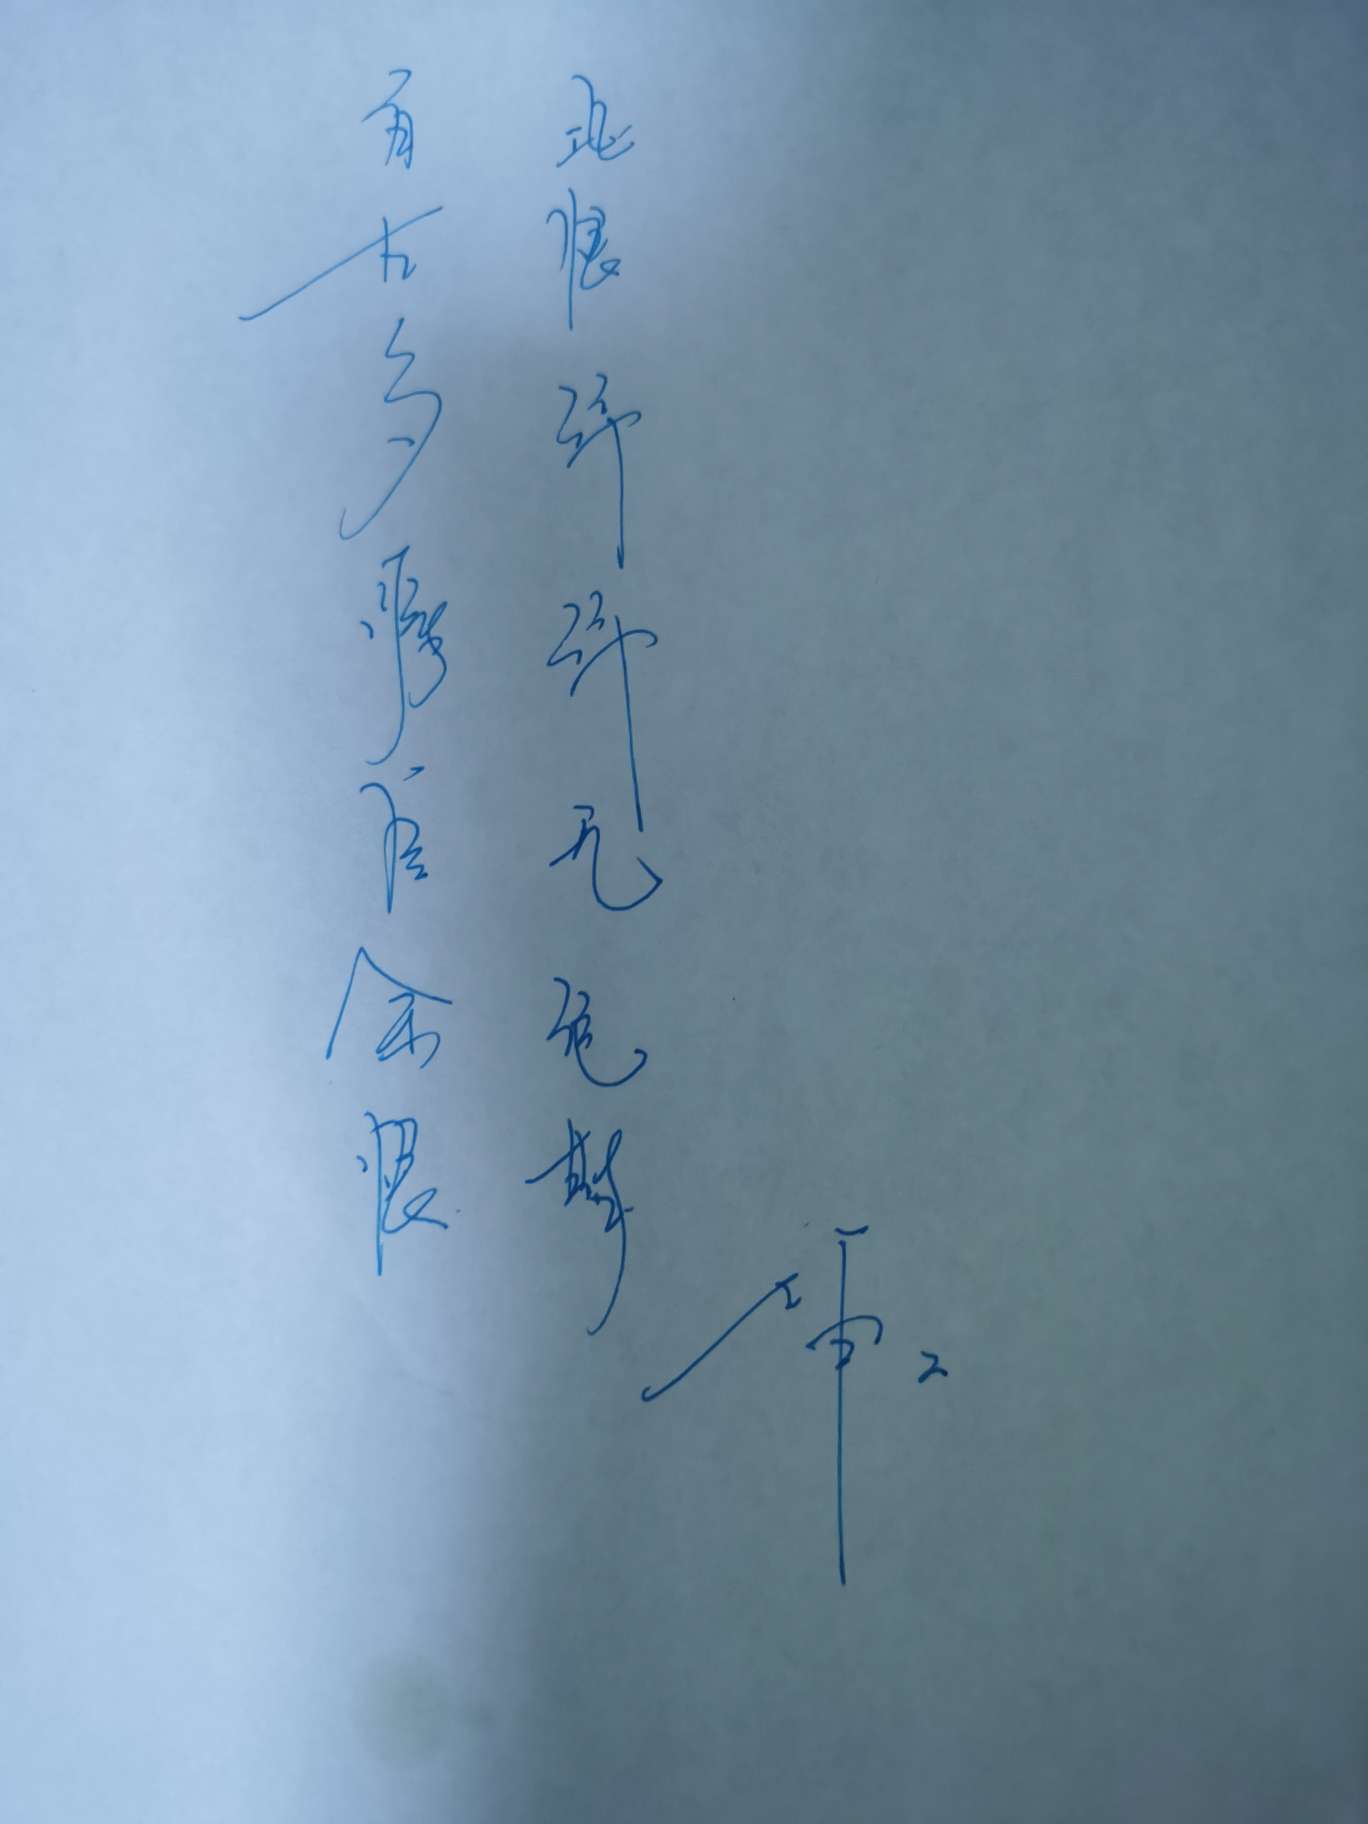 自古多情空余恨
此恨绵绵无绝期